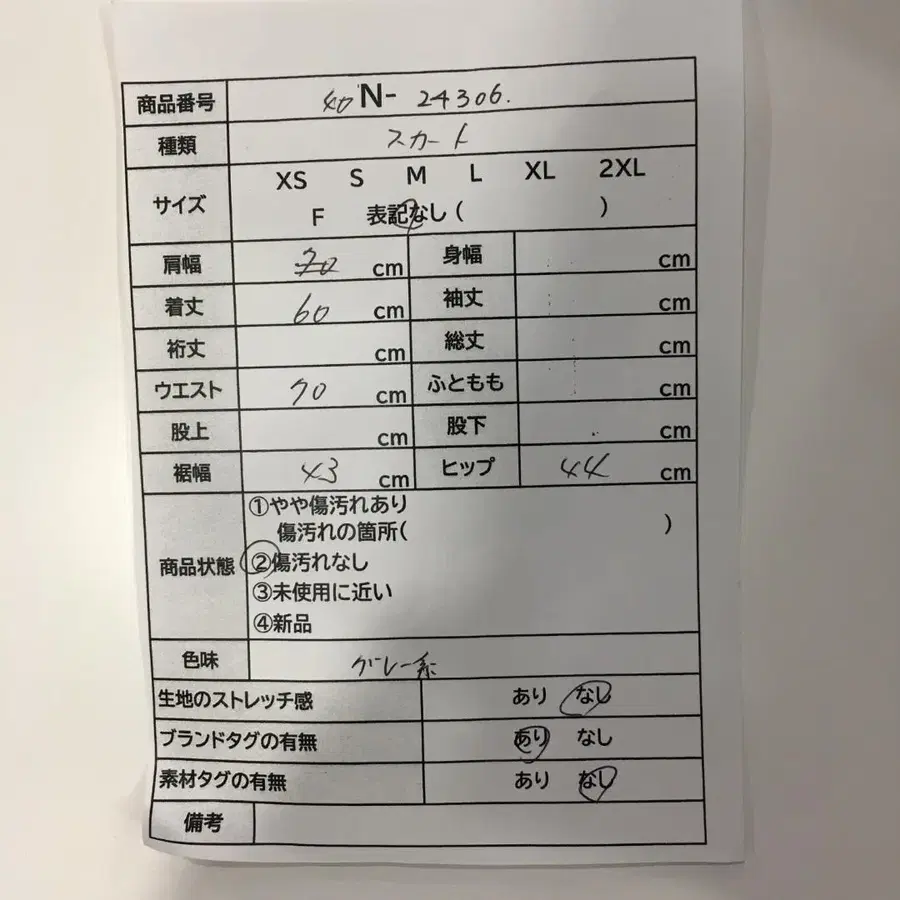 商品番号 40 N- 24306.
種類 スカート
サイズ XS S M L XL 2XL
F 表記なし ( )
肩幅 70 cm 身幅 cm
着丈 60 cm 袖丈 cm
裄丈 cm 総丈 cm
ウエスト 70 cm ふともも cm
股上 cm 股下 cm
裾幅 43 cm ヒップ 44 cm
商品状態 ①やや傷汚れあり
傷汚れの箇所( )
②傷汚れなし
③未使用に近い
④新品
色味 グレー系
生地のストレッチ感 あり なし
ブランドタグの有無 あり なし
素材タグの有無 あり なし
備考